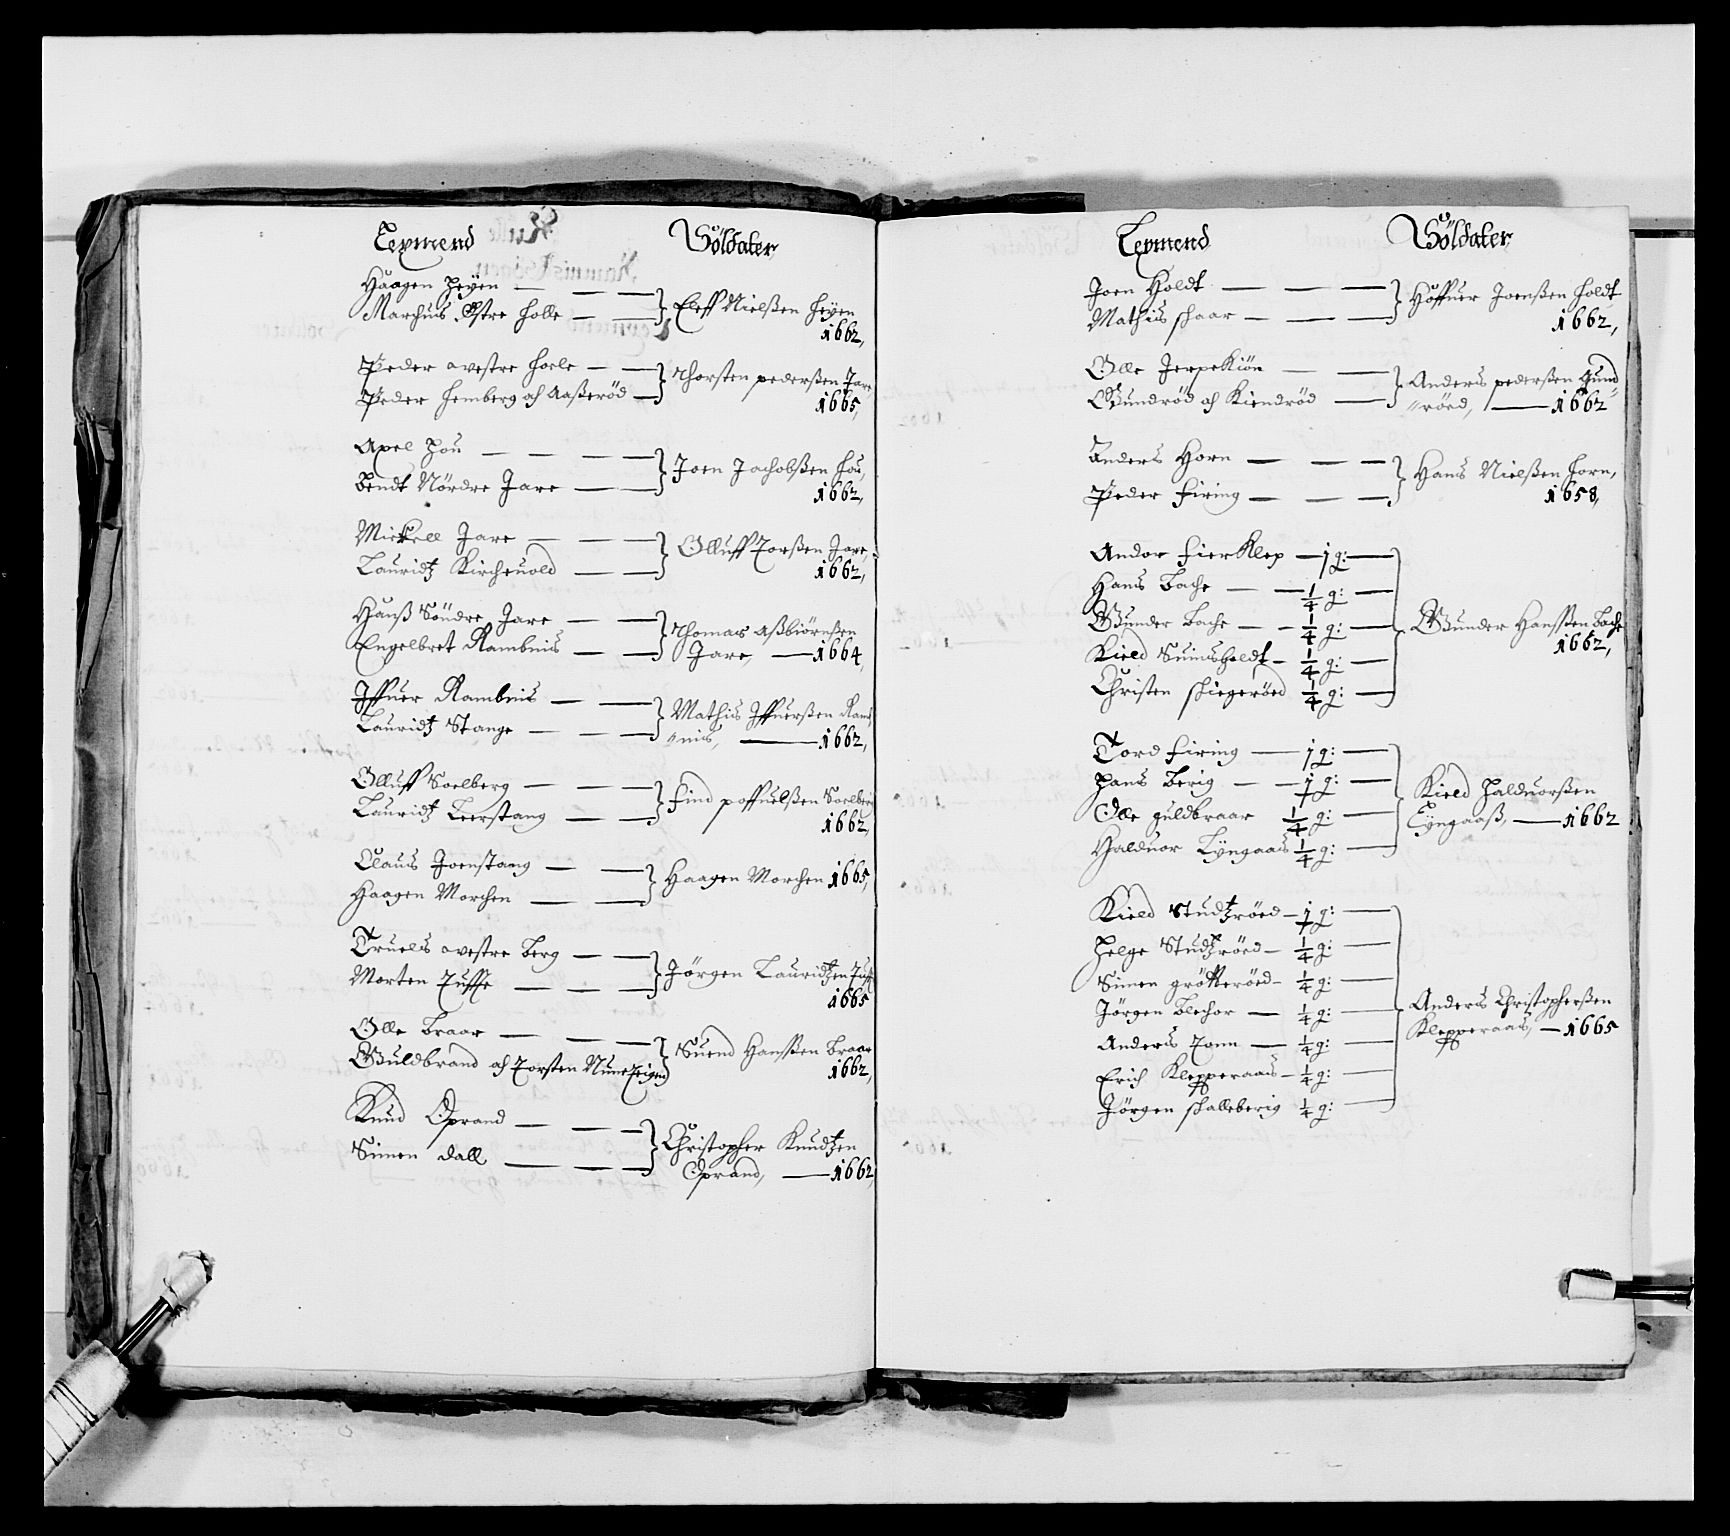 Leymend Söldater
Haagen Heÿen
Marchus Østre Holle
Eleff Nielßen Heÿen
1662,
Peder avestre Holle
Peder Hemberg och Aaßeröd
Thorsten pederßen Jare
1665,
Axel Hou
Bendt Nördre Jare
Joen Jachobßen Hou,
1662,
Mickell Jare
Lauridtz Kircheuold
Olluff Torßen Jare,
1662,
Hanß Söndre Jare
Engelbret Rambnis
Thomas Aßbiörnßen
Jare, 1664,
Iffuer Rambnis
Lauridtz Stange
Mathis Iffuerßen Ramb
nis, 1662,
Olluff Soelberg
Lauridtz Leerstang
Find poffuelßen Soelberg
1662,
Claus Joenstang
Haagen Morchen
Haagen Morchen 1665,
Truels avestre Berg
Morten Tuffte
Jörgen Lauridtzen Tufft
1665
Olle Braar
Guldbrand och Torsten
Suend Hanßen Braar
1662,
Knud Oprand
Simen Dall
Christopher Knudtzen
Oprand, 1662,
Leymend Söldater
Joen Holdt
Mathis Skaar
Joenßen Holdt
1662,
Olle Jerpekiön
Gundröd och Kiendröd
Anders pederßen Gund
röed, 1662
Anders Horn
Peder Firing
Hans Nielßen Horn,
1658,
Andor Fierklep 1 g:
Hans Bache 1/4 g:
Gunder Bache 1/4 g:
Kield Suinsholdt 1/4 g:
Christen Skiegeröed 1/4 g:
Gunder Hanßen Bache
1662,
Tord Firing 1 g:
Hans Berig 1 g:
Olle Guldbraar 1/4 g:
Halduor Lÿngaas 1/4 g:
Kield Halduorßen
Lÿngaaß, 1662
Kield Studtzröed 1 g:
Helge Studtzröed 1/4 g:
Simen Grötteröed 1/4 g:
Jörgen Blechor 1/4 g:
Anders Tonn 1/4 g:
Erich Klepperaas 1/4 g:
Jörgen Skalleberig 1/4 g:
Anders Christopherßen
Klepperaas, 1665